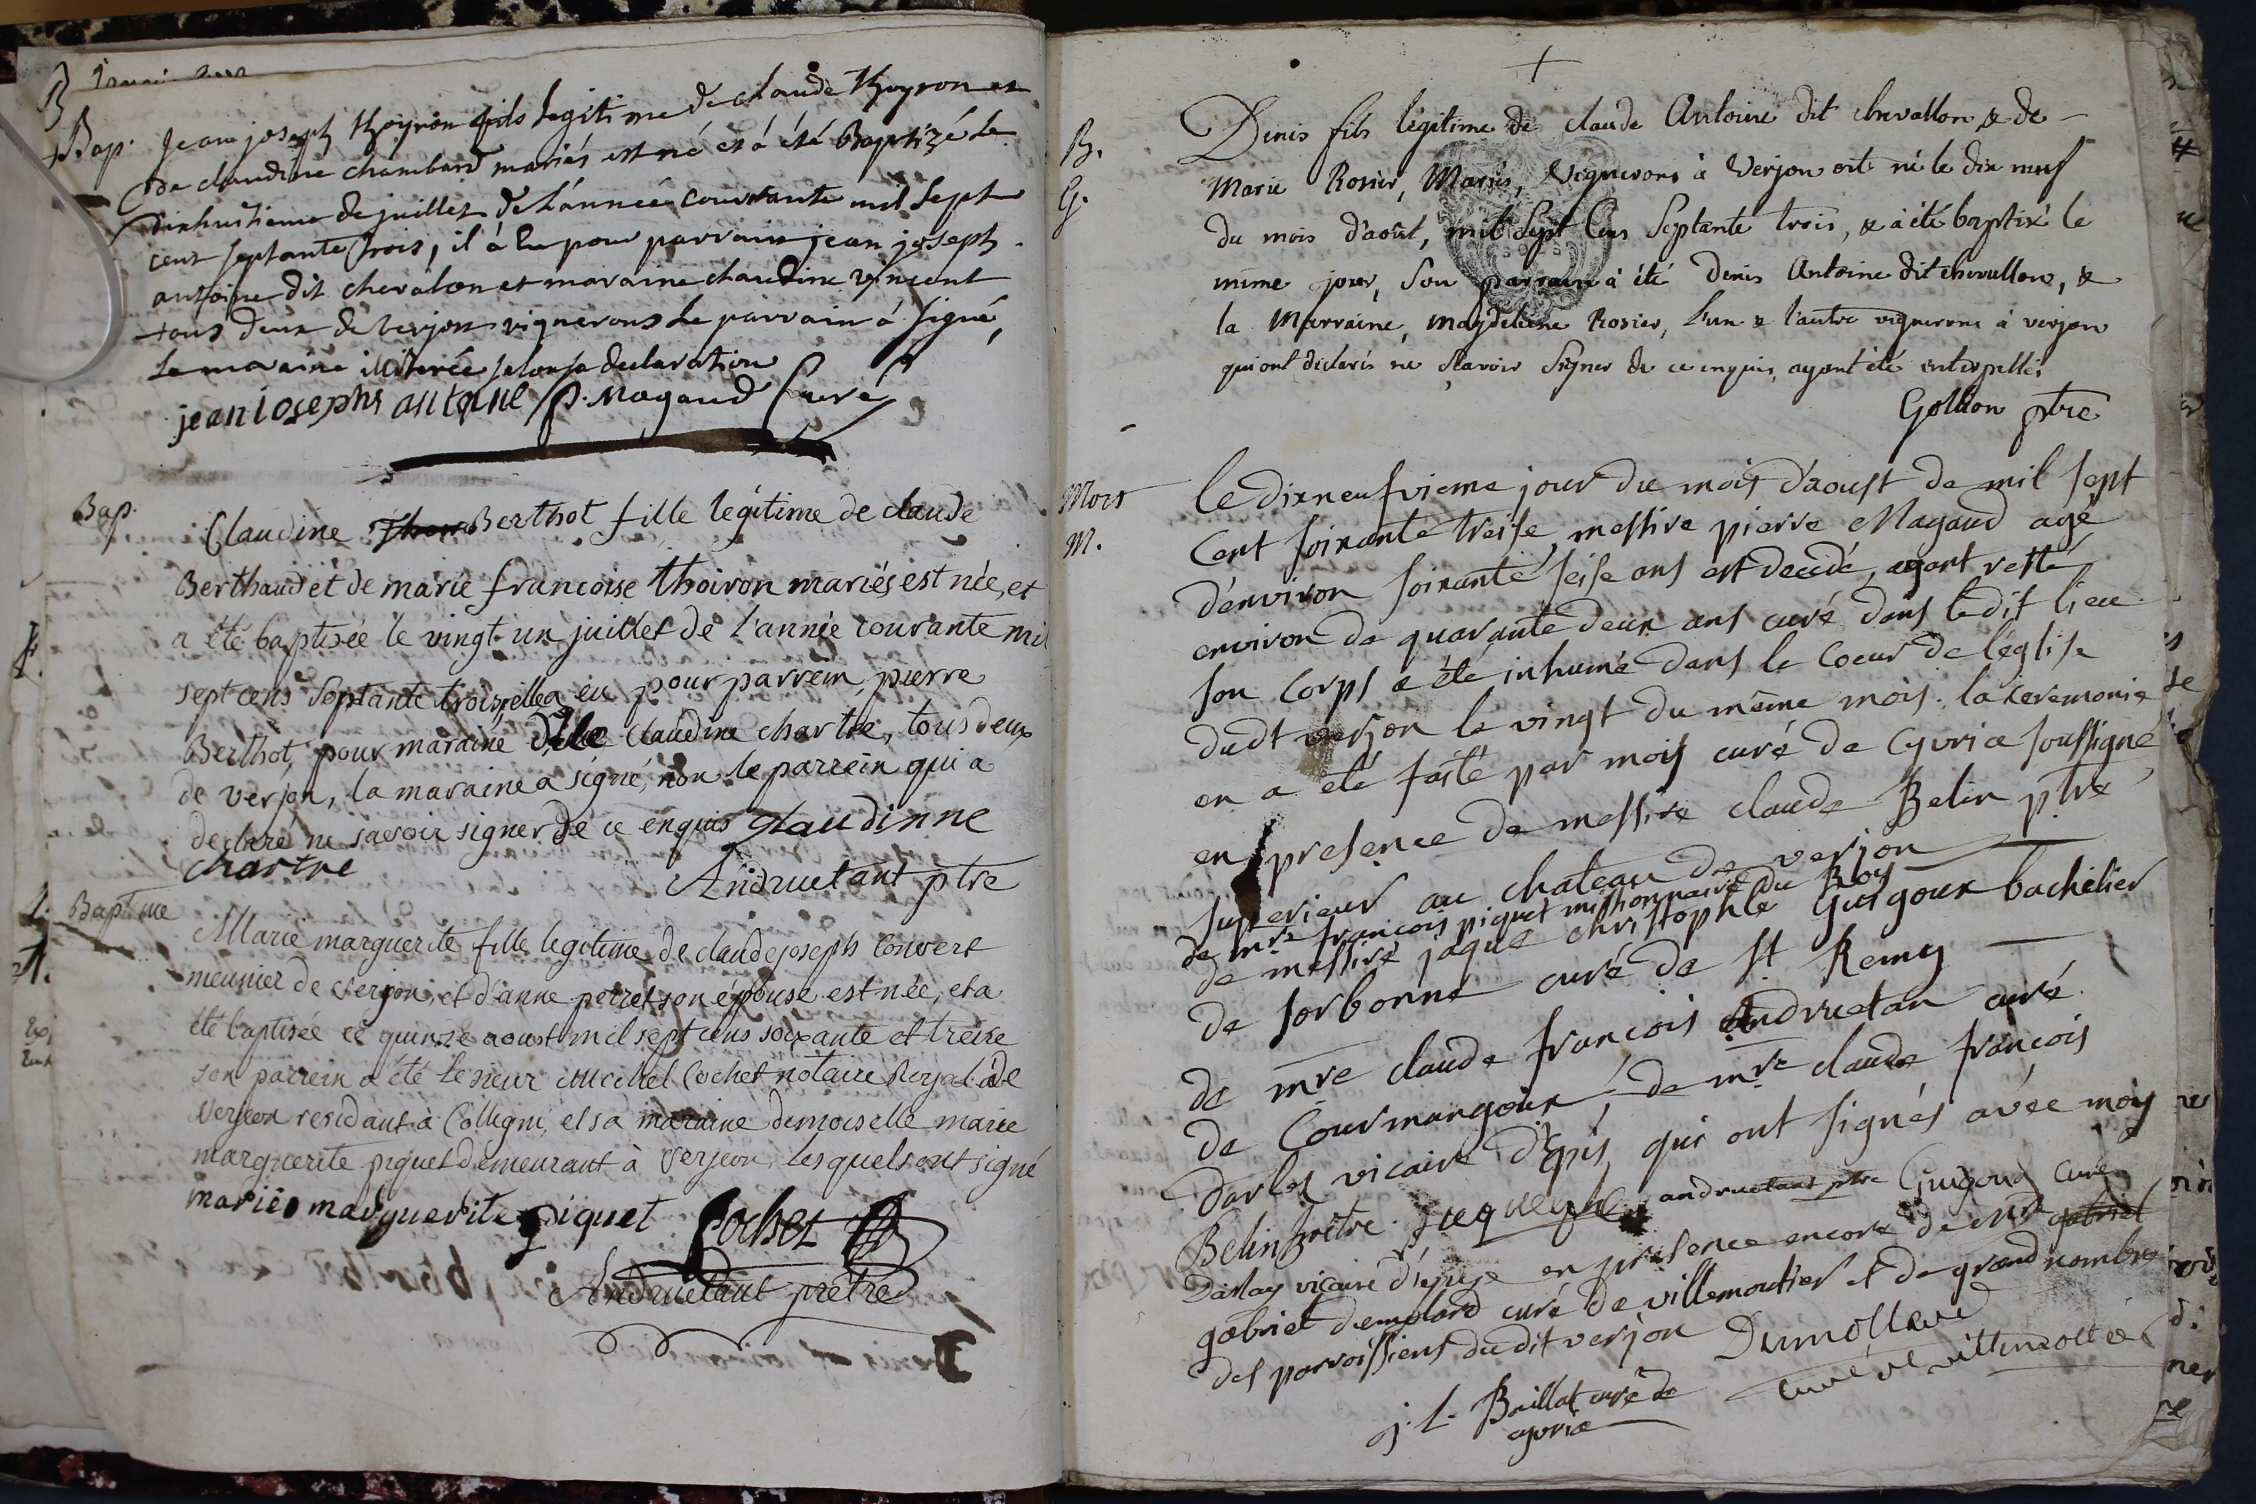 Bap. Jean joseph thoyron fils legitime de claude thoyron et
de claudine chambard mariés est né et á été Baptizé le
dixhuitieme de juillet de L'année courrante mil sept
cent septante trois, il á Eu pour parrain jean joseph
antoine dit chevalon et maraine claudine vincent
tous deux de verjon vignerons le parrain á signé,
la maraine illiterée selon sa declaration
jean iosepht antoine P. Magaud Curé
Bap.
Claudine Berthot fille legitime de claude
Berthaud et de marie francoise thoiron mariés est née, et
a été baptisée le vingt un juillet de l'année courante mil
sept cens septante trois, elle a eu pour parrein pierre
Berthot, pour maraine dlle Claudine chartre, tous deux
de verjon, la maraine a signé, non le parrein qui a
declaré ne savoir signer de ce enquis glaudinne
chartre Andruetant ptre
Bapteme
Marie marguerite fille legitime de claude joseph Convert
meunier de verjon, et d'anne perret son épouse est née, et a
été baptisée ce quinze aoust mil sept cens soixante et treize
son parrein a été le sieur michel Cochet notaire Royal de
verjeon residant à Colligni, et sa maraine demoiselle marie
marguerite piquet demeurant à verjeon, lesquels ont signé
marie marguerite piquet Cochet
Andruetant prêtre
B.
G.
Denis fils légitime de claude Antoine dit chevallon, & de
Marie Rosier, Mariés, Vignerons à Verjon est né le dix neuf
du mois d'août, mil sept Cens Septante trois, & a été baptisé le
même jour, Son parrain à été Denis Antoine dit chevallon, &
la Marraine, Magdeleine Rosier, L'un & l'autre vignerons à verjon
qui ont déclarés ne sçavoir signer de ce enquis, ayant été enterpellés
Golion ptre
Mort
M.
Le dixneufvieme jour du mois d'aoust de mil sept
Cent soixante treise messire pierre Magaud agé
d'environ soixante seise ans est decidé, ayant resté
environ de quarante deux ans curé dans le dit lieu
son corps a été inhumé dans le Coeur de l'église
dudt verjon le vingt du même mois. la ceremonie
en a été faite par mois curé de Cyvria soussigné
en presence de messire claude Belin ptre
superieur au chateau de verjon
de mre francois piquet missionnaire du Roy
de messire jaque christophle Guigoux bachelier
de sorbonne curé de st Remy
de mre claude francois Andruetan curé
de Courmangoux, de mre claude françois
darloy vicaire d'Epis, qui ont signés avec moy
Belin prêtre. andruetant ptre Guigoux Curé
Darlay vicaire en presence encore de mre gabriel
gabriel curé de villemoutier et de grand nombre
des parroissiens dudit verjon Dumollard
curé de
j. l. Baillat curé de
cyvria